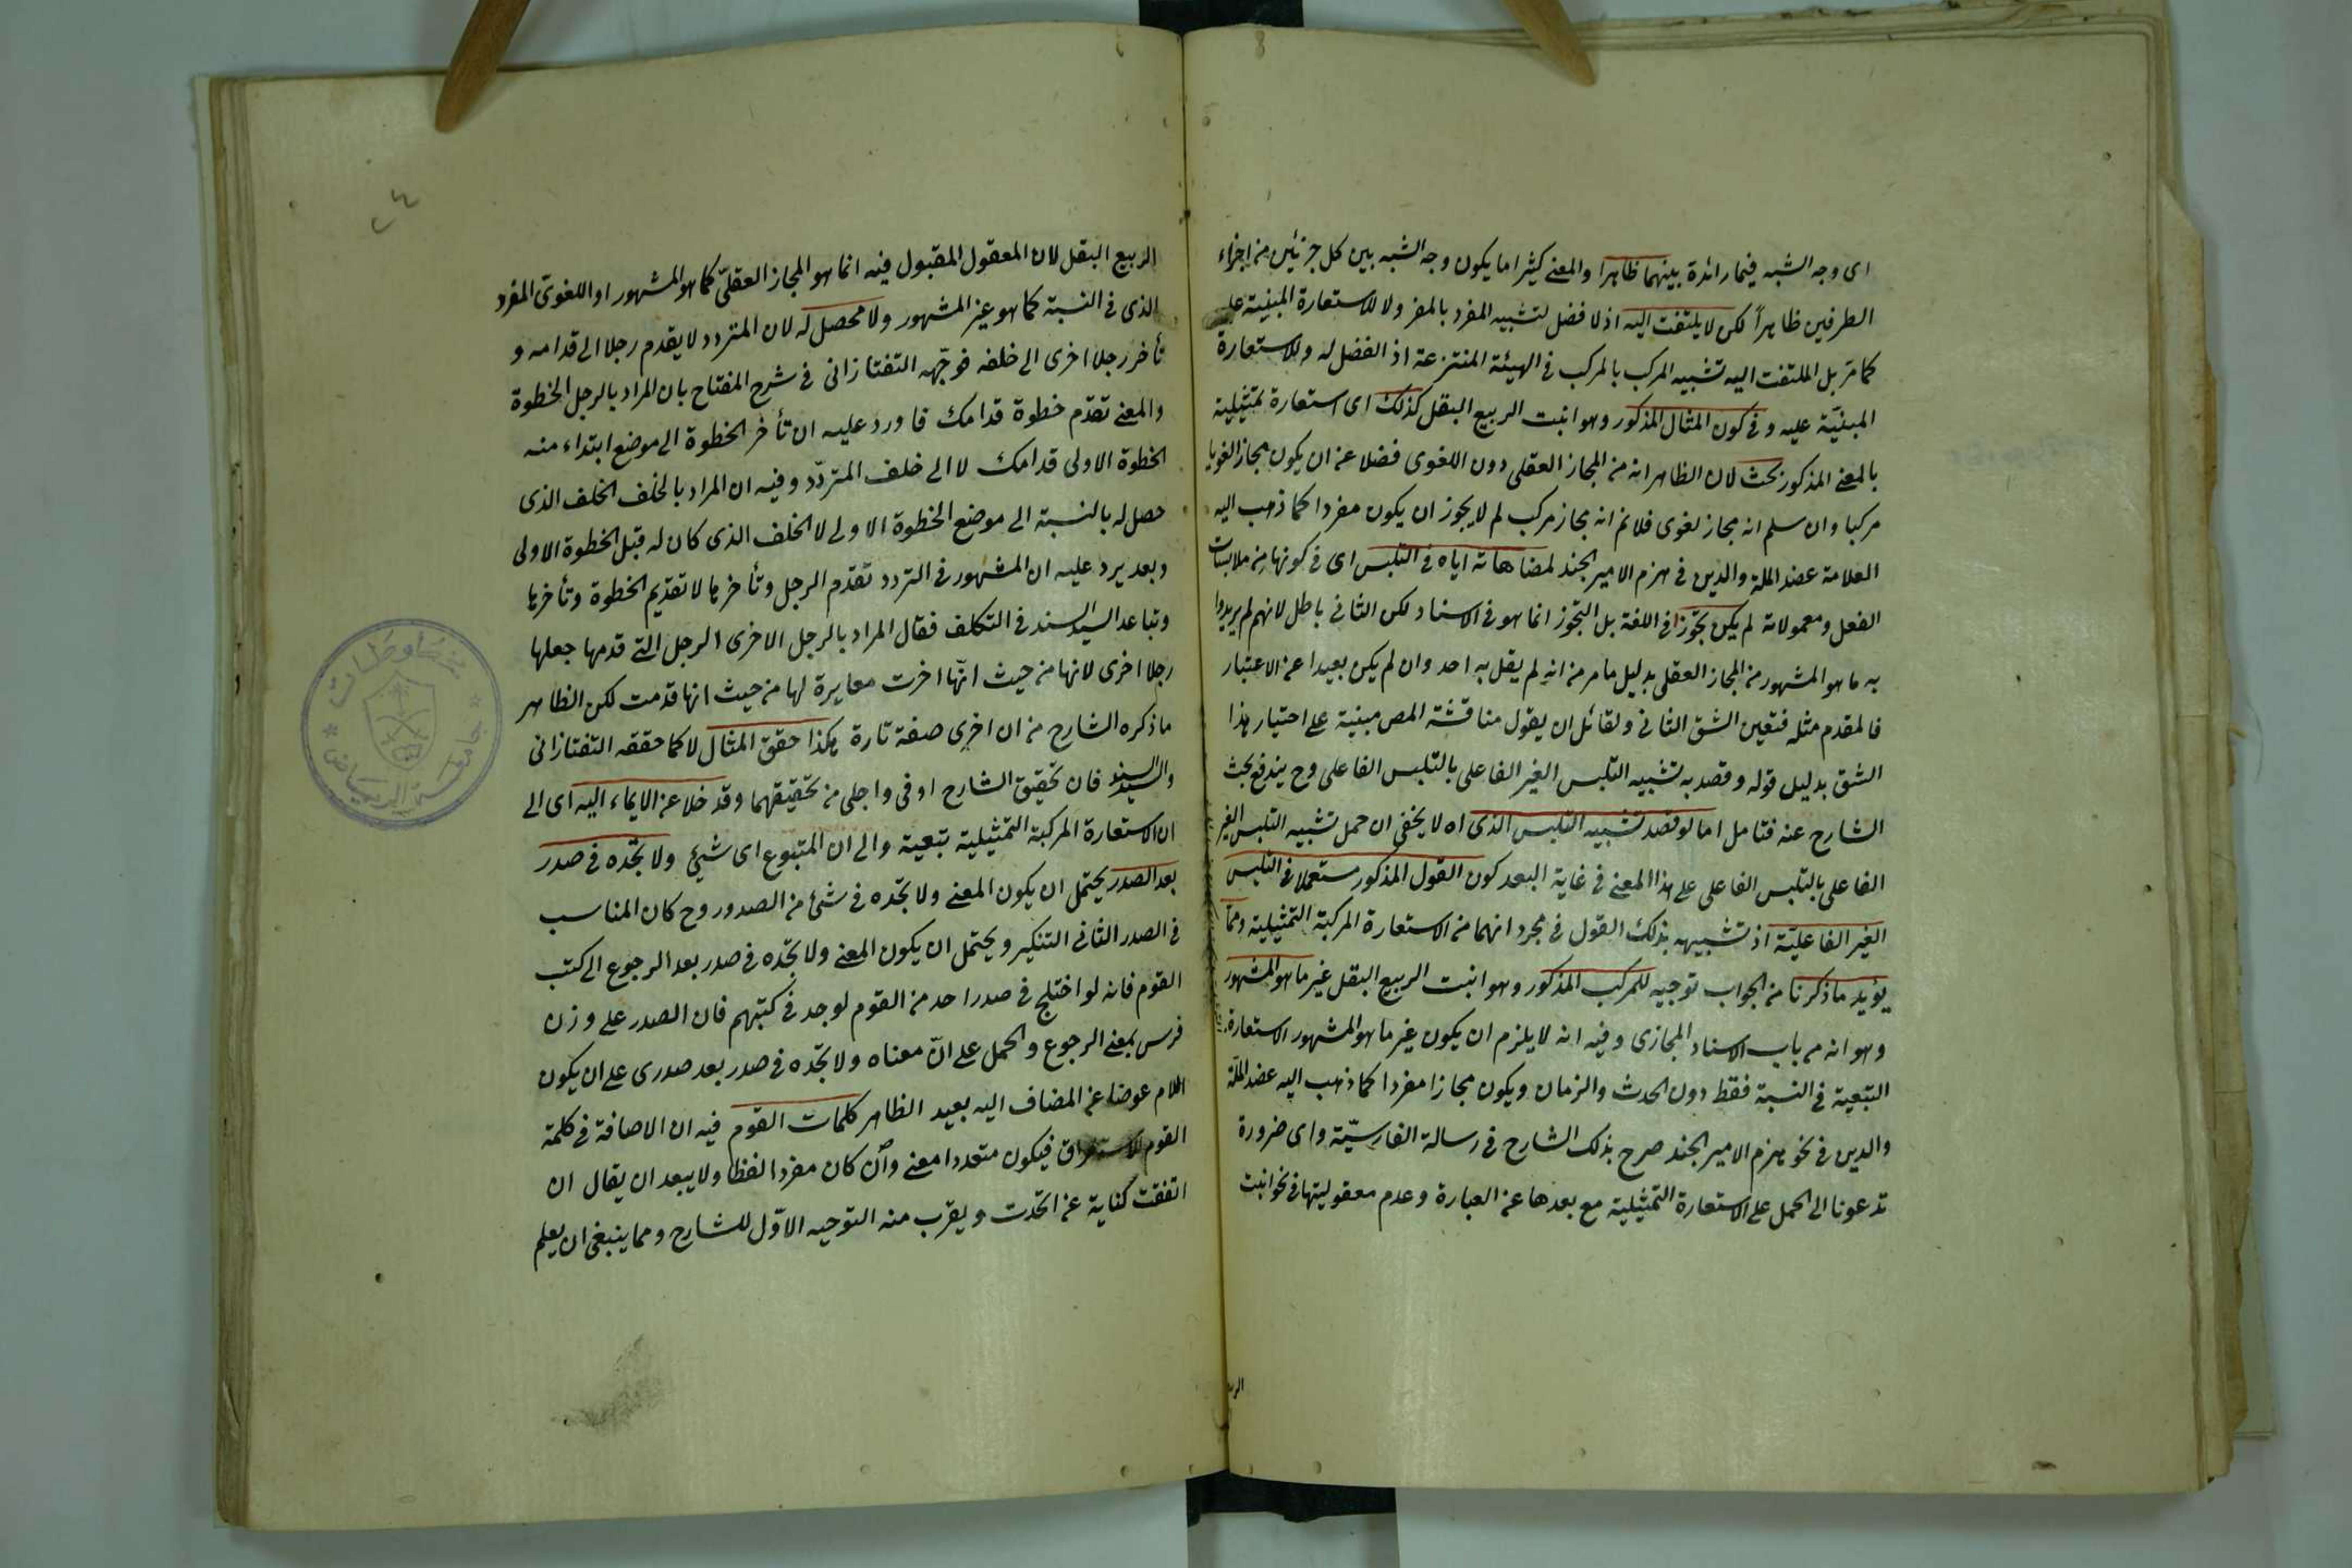 اى وجه الشبه فيما رائدة بينهما ظاهرا والمعنى كثيرا ما يكون وجه الشبه بين كل جزئين من اجزاء
الطرفين ظاهراً لكن لا يلتفت اليه اذ لا فضل لتشبيه المفرد بالمفرد ولا للاستعارة المبنية عليه
كما مر بل الملتفت اليه تشبيه المركب بالمركب فى الهيئة المنتزعة اذ الفضل له وللاستعارة
المبنيّة عليه وفى كون المثال المذكور وهو انبت الربيع البقل كذلك اى استعارة تمثيلية
بالمعنى المذكور بحث لان الظاهر انه من المجاز العقلى دون اللغوى فضلا عن ان يكون مجازا لغويا
مركبا وان سلم انه مجاز لغوى فلا نم انه مجاز مركب لم لا يجوز ان يكون مفردا كما ذهب اليه
العلامة عضد الملة والدين فى هزم الامير الجند لمضاهاته اياه فى التلبس اى فى كونها من ملابسات
الفعل ومعمولاته لم يكن تجوّزا فى اللغة بل التجوز انما هو فى الاسناد لكن الثانى باطل لانهم لم يريدوا
به ما هو المشهور من المجاز العقلى بدليل ما مر من انه لم يقل به احد وان لم يكن بعيدا عن الاعتبار
فالمقدم مثله فتعين الشق الثانى ولقائل ان يقول مناقشة المص مبنية على اختيار هذا
الشق بدليل قوله وقصد به تشبيه التلبس الغير الفاعلى بالتلبس الفاعلى وح يندفع بحث
الشارح عنه فتامل اما لو قصد تشبيه التلبس الذى اه لا يخفى ان حمل تشبيه التلبس الغير
الفاعلى بالتلبس الفاعلى على هذا المعنى فى غاية البعد كون القول المذكور مستعملا فى التلبس
الغير الفاعليّة اذ تشبيهه بذلك القول فى مجرد انهما من الاستعارة المركبة التمثيلية ومما
يؤيد ما ذكرنا من الجواب توجيه للمركب المذكور وهو انبت الربيع البقل غير ما هو المشهور
وهو انه من باب الاسناد المجازى وفيه انه لا يلزم ان يكون غير ما هو المشهور الاستعارة
التبعية فى النسبة فقط دون الحدث والزمان ويكون مجازا مفردا كما ذهب اليه عضد الملّة
والدين فى نحو هزم الامير الجند صرح بذلك الشارح فى رسالة الفارسيّة واى ضرورة
تدعونا الى الحمل على الاستعارة التمثيلية مع بعدها عن العبارة وعدم معقوليتها فى نحو انبت
الر
٢٤
الربيع البقل لان المعقول المقبول فيه انما هو المجاز العقلىّ كما هو المشهور او اللغوىّ المفرد
الذى فى النسبة كما هو غير المشهور ولا محصل له لان المتردد لا يقدم رجلا الى قدامه و
تأخر رجلا اخرى الى خلفه فوجّهه التفتازانى فى شرح المفتاح بان المراد بالرجل الخطوة
والمعنى تقدّم خطوة قدامك فاورد عليه ان تأخر الخطوة الى موضع ابتداء منه
الخطوة الاولى قدامك لا الى خلف المتردّد وفيه ان المراد بالخلف الخلف الذى
حصل له بالنسبة الى موضع الخطوة الاولى لا الخلف الذى كان له قبل الخطوة الاولى
وبعد يرد عليه ان المشهور فى التردد تقدم الرجل وتأخرها لا تقديم الخطوة وتأخرها
وتباعد السيد السند فى التكلف فقال المراد بالرجل الاخرى الرجل التى قدمها جعلها
رجلا اخرى لانها من حيث انّها اخرت مغايرة لها من حيث انها قدمت لكن الظاهر
ما ذكره الشارح من ان اخرى صفة تارة هكذا حقق المثال لا كما حققه التفتازانى
والسيد السند فان تحقيق الشارح اوفى واجلى من تحقيقهما وقد خلا عن الايماء اليه اى الى
ان الاستعارة المركبة التمثيلية تبعية والى ان المتبوع اى شىء ولا تجده فى صدر
بعد الصدر يحتمل ان يكون المعنى ولا تجّده فى شئ من الصدور وح كان المناسب
فى الصدر الثانى التنكير ويحتمل ان يكون المعنى ولا تجّده فى صدر بعد الرجوع الى كتب
القوم فانه لو اختلج فى صدر احد من القوم لوجد فى كتبهم فان الصدر على وزن
فرس بمعنى الرجوع والحمل على انّ معناه ولا تجّده فى صدر بعد صدرى على ان يكون
اللام عوضا عن المضاف اليه بعيد الظاهر كلمات القوم فيه ان الاضافة فى كلمة
القوم للاستغراق فيكون متعددا معنى وان كان مفردا لفظا ولا يبعد ان يقال ان
اتفقت كناية عن اتحدت ويقرب منه التوجيه الاوّل للشارح ومما ينبغى ان يعلم
جامعة الرياض
مخطوطات